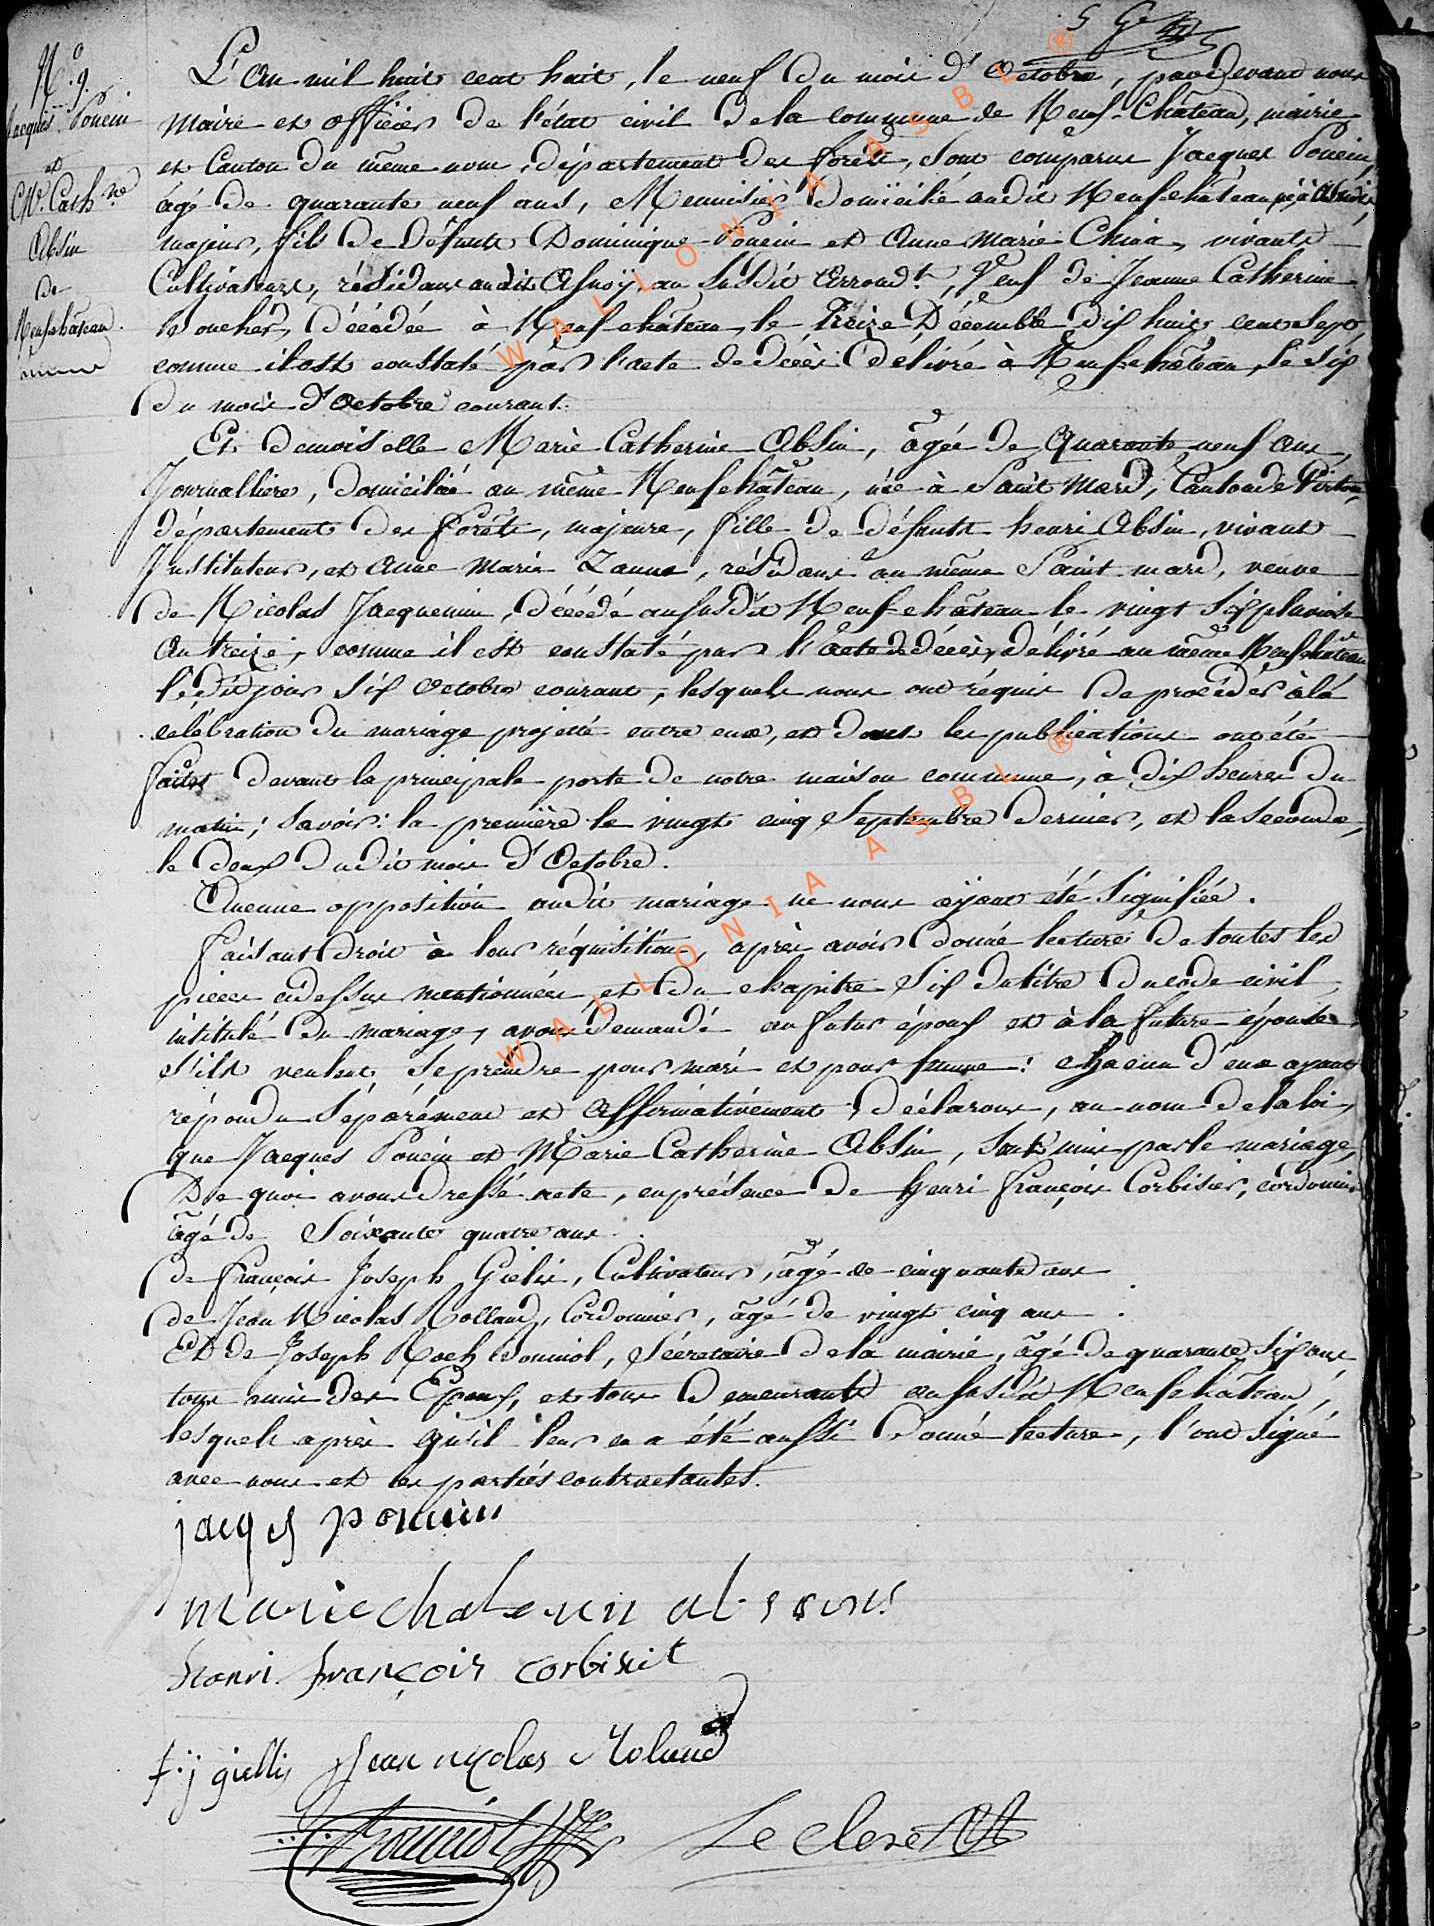 N.º 9.
Jacques Poncin
et
M.e Cath.ne
Absin
de
Neufchâteau.
L'an mil huit cent huit, le neuf du mois d'Octobre, pardevant nous
Maire et officier de l'état civil de la commune de Neuf-Château, mairie
et Canton du même nom, département des forêts, sont comparus Jacques Poncin,
âgé de quarante neuf ans, Menuisier domicilié audit Neufchâteau, né à
majeur, fils de défunts Dominique Poncin et Anne Marie China, vivants
Cultivateurs, résidans audit Asnoÿ, au susdit arrond.t, Veuf de Jeanne Catherine
décédée à Neufchâteau le Treize Décembre dix huit cent sept,
comme il est constaté par l'acte de décès délivré à Neufchâteau, le six
du mois d'Octobre courant.
Et demoiselle Marie Catherine Absin, âgée de quarante neuf ans,
Journallière, domiciliée au même Neufchâteau, née à Saint Mard, Canton de Virton
département des Forêts, majeure, fille de défunt henri Absin, vivant
Instituteur, et Anne Marie Zanne, résidans au même Saint mard, veuve
de Nicolas Jacquemin, décédé au susdit Neufchâteau le vingt six pluviose
an treize, comme il est constaté par l'acte de décès, délivré au même Neufchâteau
lédit jour six Octobre courant, lesquels nous ont réquis de procéder à la
célébration du mariage projetté entre eux, et dont les publications ont été
faites devant la principale porte de notre maison commune, à dix heures du
matin; savoir: la première le vingt cinq Septembre dernier, et la seconde,
le deux dudit mois d'Octobre.
Aucune opposition audit mariage ne nous ayant été signifiée.
faisant droit à leur réquisition, après avoir donné lecture de toutes les
pièces cidessus mentionnées et du chapitre six du titre du code civil
intitulé du mariage, avons demandé au futur époux et à la future épouse
s'ils veulent se prendre pour mari et pour femme: chacun d'eux ayant
répondu séparément et affirmativement, déclarons, au nom de la loi,
que Jacques Poncin et Marie Catherine Absin, sont unis par le mariage,
De quoi avons dressé acte, en présence de henri françois Corbisier, cordonnier
âgé de soixante quatre ans.
de françois Joseph Gielis, Cultivateur, âgé de cinquante ans
de Jean Nicolas Rolland, Cordonnier, âgé de vingt cinq ans
Et de Joseph Roch Domiol, Sécretaire de la mairie, âgé de quarante six ans
tous amis des Epoux, et tous demeurants au susdit Neufchâteau,
lesquels après qu'il leur en a été aussi donné lecture, l'ont signé
avec nous et les parties contractantes.
jacques poncin
marie
henri françois corbisier
f: j giellis Jean nicolas Roland
Domiol Leclerc
WALLONIA ASBL ®
WALLONIA ASBL ®